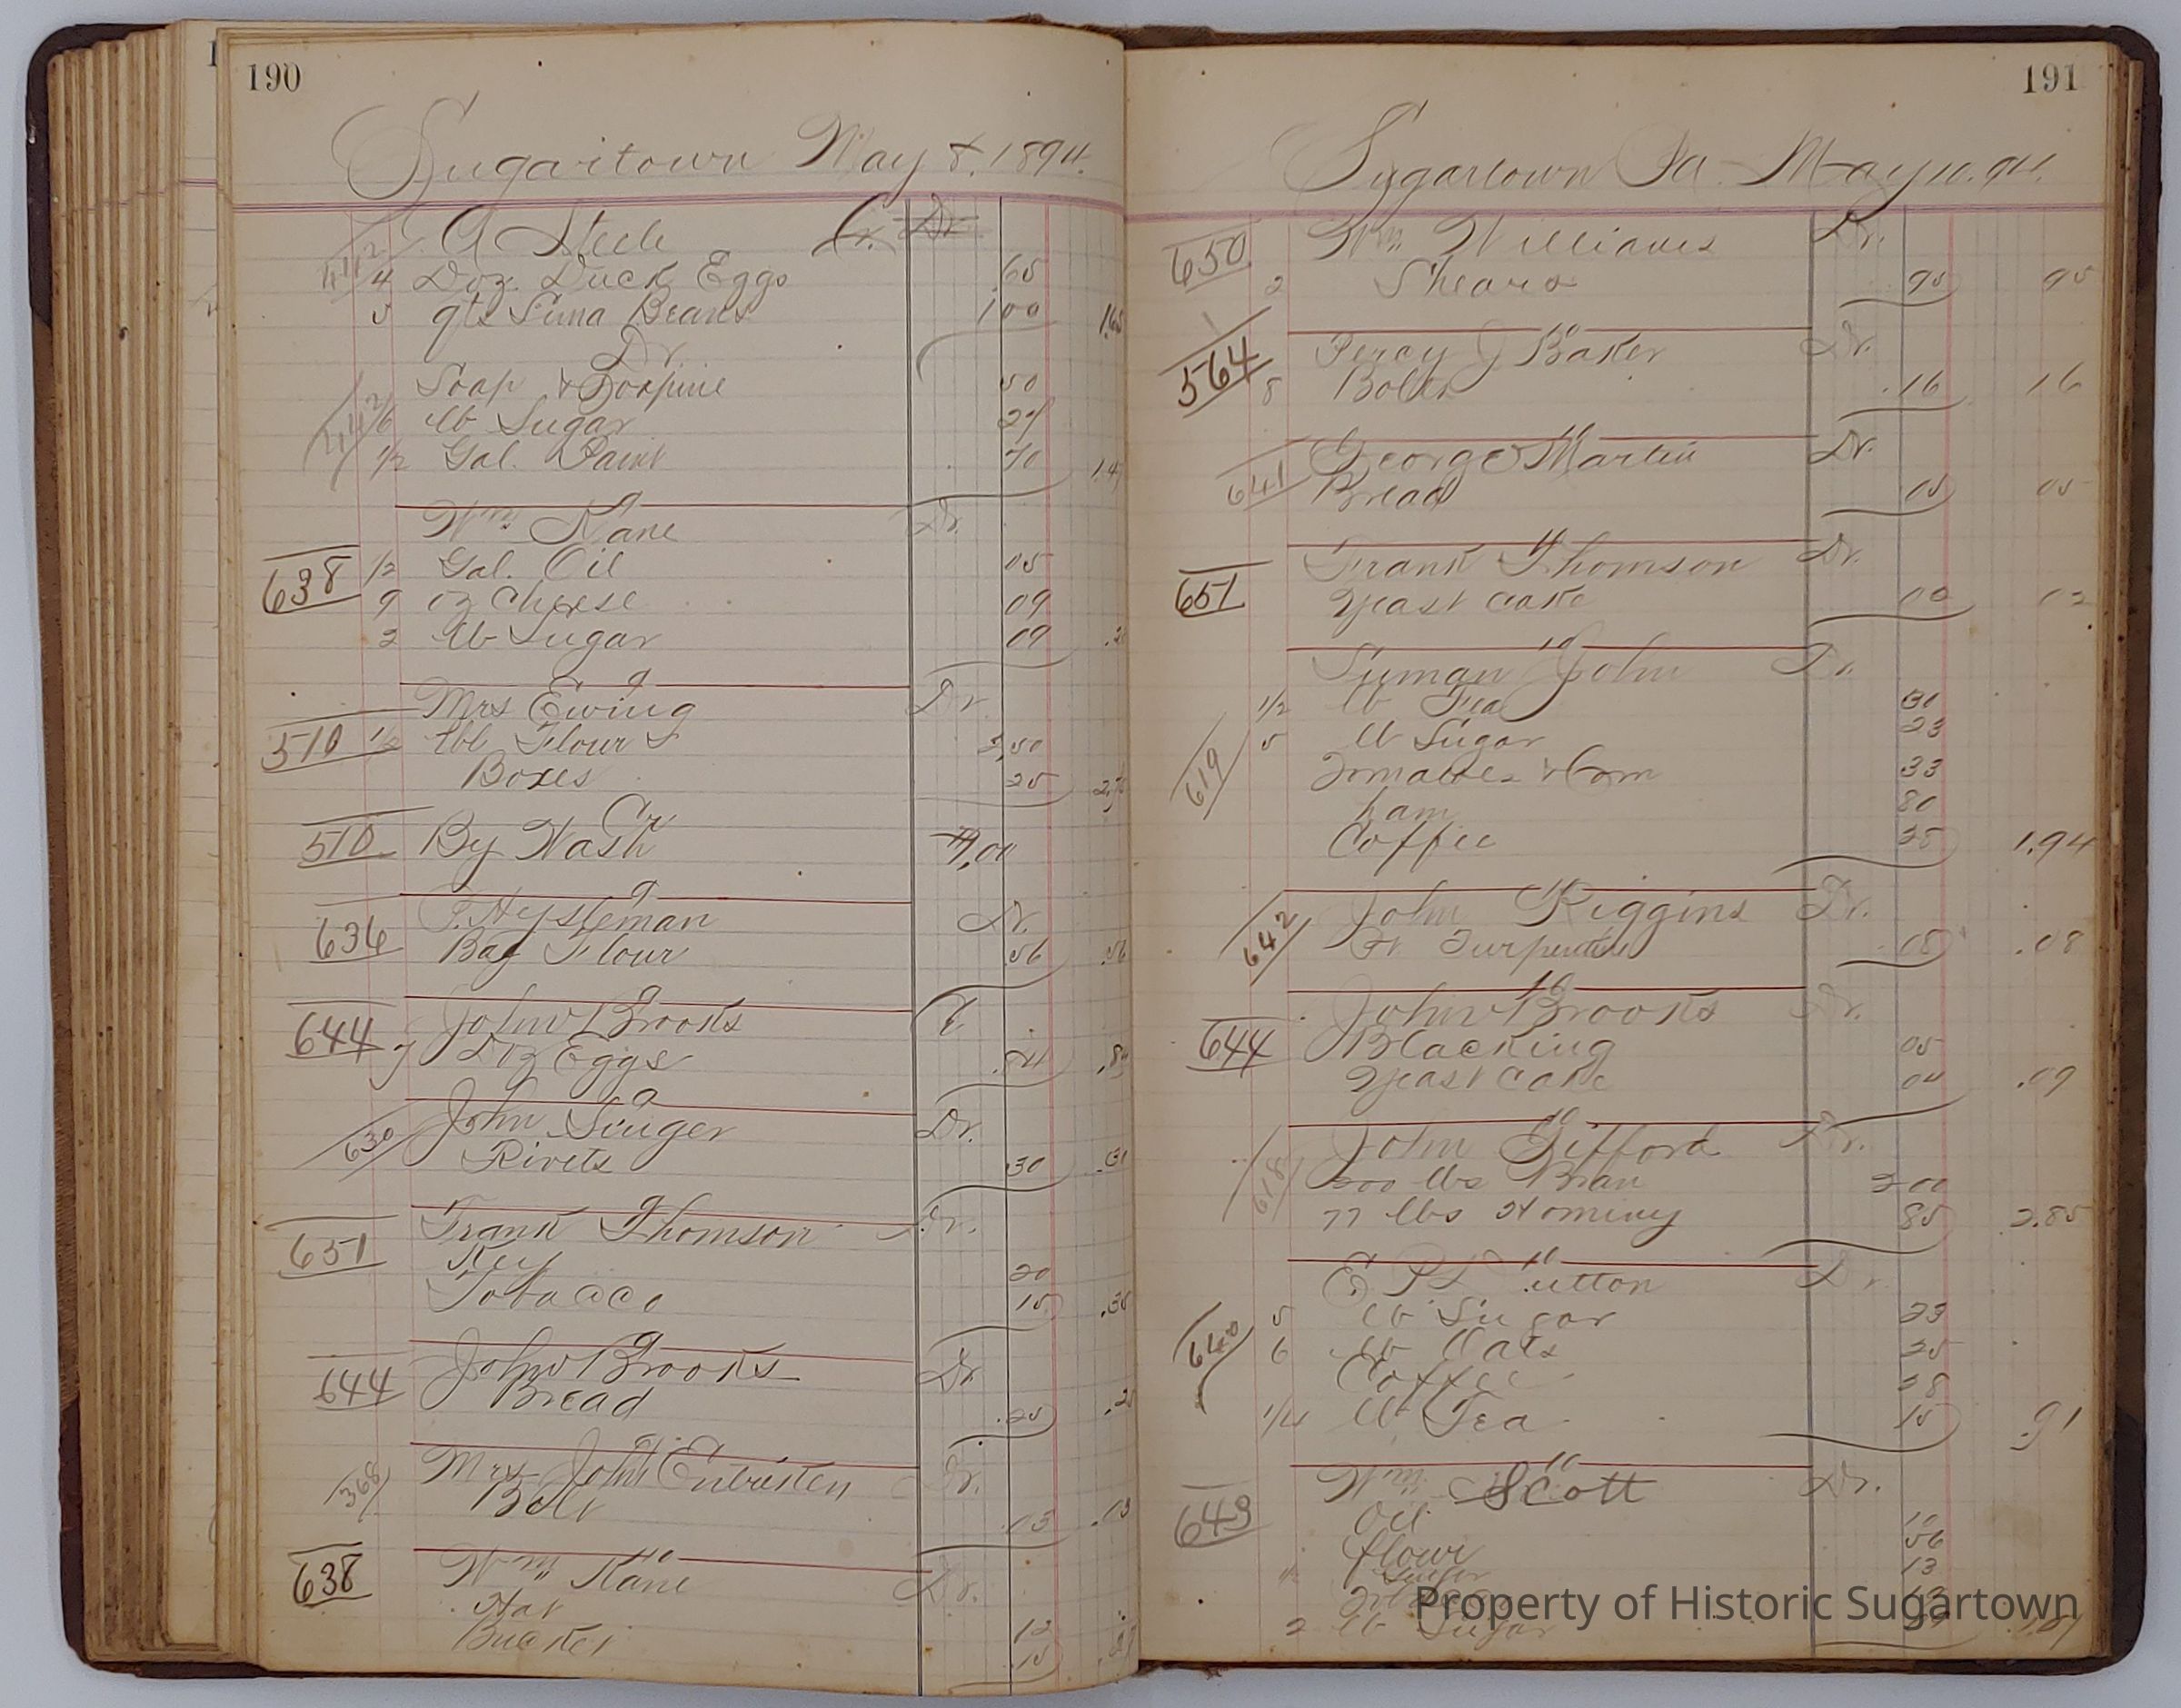 190
Sugartown May 8. 1894.
A Steele Cr. Dr
4 Doz. Duck Eggs .65
5 qts Lima Beans 1 00 1.65
Dr
Soap & Soapine 50
6 lb Sugar 27
1/2 Gal. Paint 70 1.47
9
Wm Kane Dr.
638 1/2 Gal. Oil 05
9 oz Cheese 09
2 lb Sugar 09
9
Mrs Ewing Dr
510 1/2 bbl Flour 2,50
Boxes 25 2,75
Cr
510 By Wash
9
Dr.
636 Bag Flour .56 .56
9
644 John Brooks
7 Doz Eggs .84 .84
9
630 John Singer Dr.
Rivets .30
9
651 Frank Thomson Dr.
Key 20
Tobacco 15 .35
9
644 John Brooks Dr
Bread .25
9
368 Mrs John Entristen Dr.
Bolt .13 .13
10
638 Wm Kane Dr.
Hat 12
Bucket .15
191
Sugartown Pa. May 10. 94.
650 Wm Williams Dr.
2 Shears 95 95
10
564 Percy J Baker Dr.
8 Bolts .16 16
10
641 George Martin Dr.
Bread 05 05
10
651 Frank Thomson Dr.
Yeast Cake 02 02
10
Suman John Dr.
1/2 lb Tea
619 5 lb Sugar 23
Tomatoes & Corn 33
ham 80
Coffee 28 1.94
10
642 John Riggins Dr.
Pt Turpentine .08 .08
10
644 John Brooks Dr.
Blacking 05
Yeast Cake 04 .09
10
618 John Gifford Dr.
200 lbs Bran 2 00
77 lbs Hominy 85 2.85
10
E utton Dr.
5 lb Sugar 23
640 6 lb Oats 25
Coffee 28
1/4 lb Tea 15 .91
10
Wm Scott Dr.
643 Oil
flour 56
13
2 lb Sugar
Property of Historic Sugartown